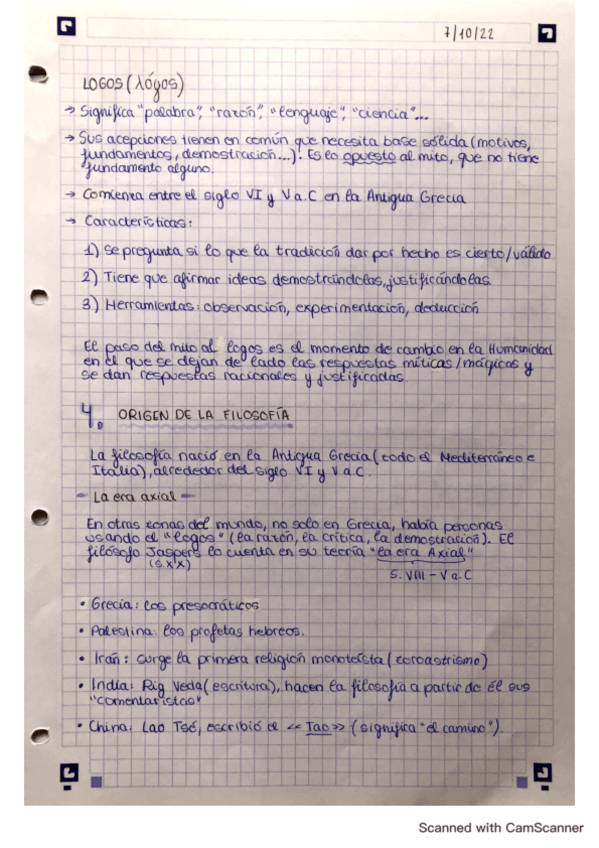 7/10/22
LOGOS (λόγos)
→ Significa "palabra", "razón", "lenguaje", "ciencia"...
→ Sus acepciones tienen en común que necesita base sólida (motivos,
fundamentos, demostración...). Es lo opuesto al mito, que no tiene
fundamento alguno.
→ Comienza entre el siglo VI y V a.C en la Antigua Grecia
→ Características:
1) Se pregunta si lo que la tradición dar por hecho es cierto/válido
2) Tiene que afirmar ideas demostrándolas, justificándolas.
3) Herramientas: observación, experimentación, deducción
El paso del mito al logos es el momento de cambio en la Humanidad
en el que se dejan de lado las respuestas míticas/mágicas y
se dan respuestas racionales y justificadas.
4. ORIGEN DE LA FILOSOFÍA
La filosofía nació en la Antigua Grecia (todo el Mediterráneo e
Italia), alrededor del siglo VI y V a.C.
- La era axial -
En otras zonas del mundo, no solo en Grecia, había personas
usando el "logos" (la razón, la crítica, la demostración). El
filósofo Jaspers lo cuenta en su teoría "la era Axial"
(s. XX)
S. VIII - V a.C
• Grecia: los presocráticos
• Palestina: los profetas hebreos.
• Irán: surge la primera religión monoteísta (zoroastrismo)
• India: Rig Veda (escritura), hacen la filosofía a partir de él sus
"comentaristas"
• China: Lao Tsé, escribió el «Tao» (significa "el camino").
Scanned with CamScanner